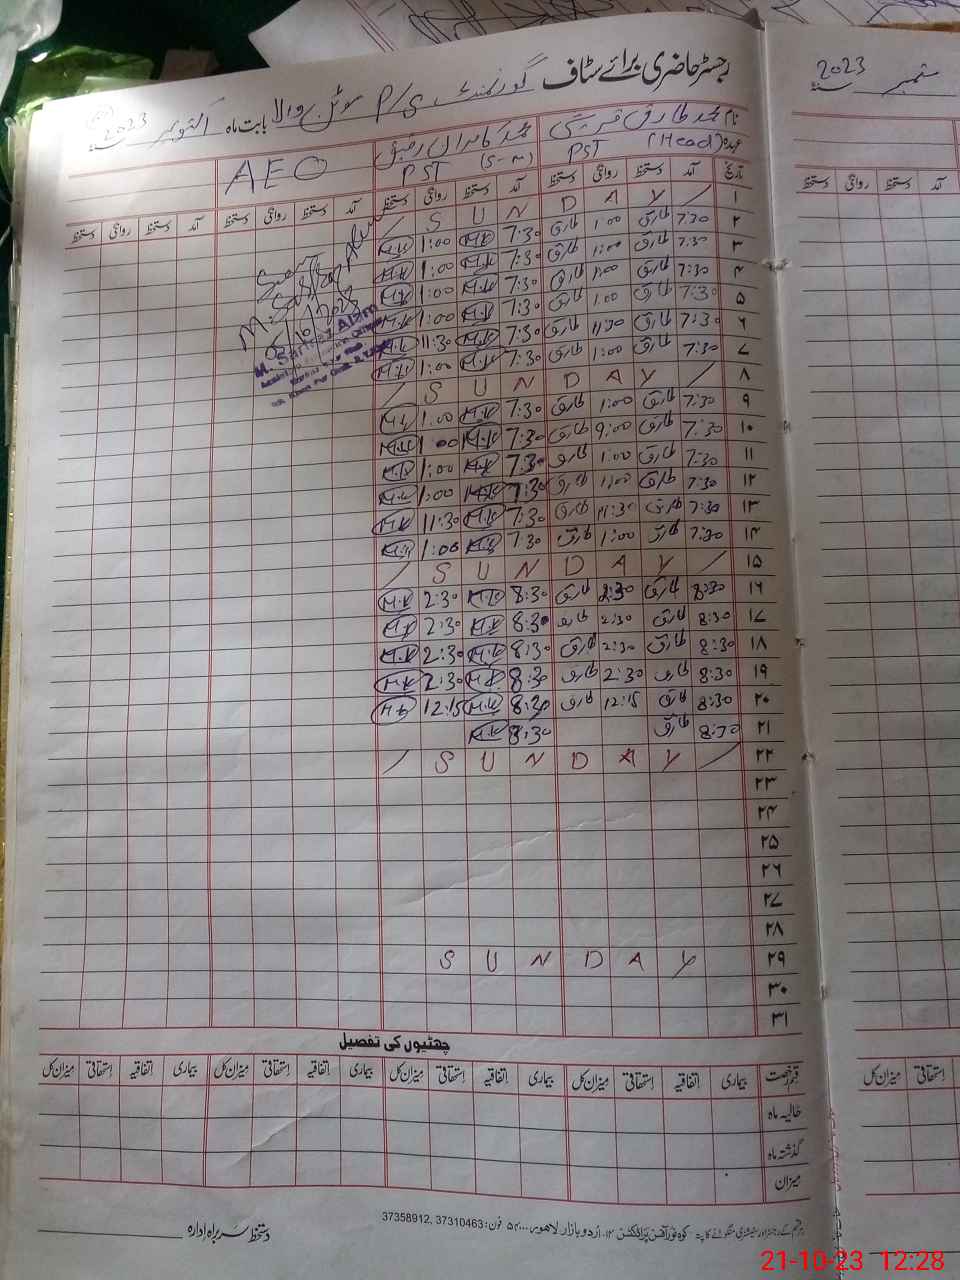 رجسٹر حاضری برائے سٹاف گورنمنٹ P/S موٹن والا بابت ماہ اکتوبر سنہ 2023
ستمبر سنہ 2023
نام محمد طارق قریشی محمد کامران رفیق AEO
عہدہ (Head) PST PST (S-M)
تاریخ آمد دستخط روانگی دستخط آمد دستخط روانگی دستخط آمد دستخط روانگی دستخط آمد دستخط روانگی دستخط
۱ / S U N D A Y /
۲ 7:30 طارق 1:00 طارق 7:30 M.K 1:00 M.K
۳ 7:30 طارق 1:00 طارق 7:30 M.K 1:00 M.K
۴ 7:30 طارق 1:00 طارق 7:30 M.K 1:00 M.K
۵ 7:30 طارق 1:00 طارق 7:30 M.K 1:00 M.K
۶ 7:30 طارق 11:30 طارق 7:30 M.K 11:30 M.K
۷ 7:30 طارق 1:00 طارق 7:30 M.K 1:00 M.K
۸ / S U N D A Y /
۹ 7:30 طارق 1:00 طارق 7:30 M.K 1:00 M.K
۱۰ 7:30 طارق 9:00 طارق 7:30 M.K 1:00 M.K
۱۱ 7:30 طارق 1:00 طارق 7:30 M.K 1:00 M.K
۱۲ 7:30 طارق 1:00 طارق 7:30 M.K 1:00 M.K
۱۳ 7:30 طارق 11:30 طارق 7:30 M.K 11:30 M.K
۱۴ 7:30 طارق 1:00 طارق 7:30 M.K 1:00 M.K
۱۵ / S U N D A Y /
۱۶ 8:30 طارق 2:30 طارق 8:30 M.K 2:30 M.K
۱۷ 8:30 طارق 2:30 طارق 8:30 M.K 2:30 M.K
۱۸ 8:30 طارق 2:30 طارق 8:30 M.K 2:30 M.K
۱۹ 8:30 طارق 2:30 طارق 8:30 M.K 2:30 M.K
۲۰ 8:30 طارق 12:15 طارق 8:30 M.K 12:15 M.K
۲۱ 8:30 طارق 8:30 M.K
۲۲ / S U N D A Y /
۲۳
۲۴
۲۵
۲۶
۲۷
۲۸
۲۹ S U N D A Y
۳۰
۳۱
Seen
M. Sarfraz Alam
چھٹیوں کی تفصیل
قسم رخصت بیماری اتفاقیہ استحقاقی میزان کل بیماری اتفاقیہ استحقاقی میزان کل بیماری اتفاقیہ استحقاقی میزان کل بیماری اتفاقیہ استحقاقی میزان کل
حالیہ ماہ
گذشتہ ماہ
میزان
ہر قسم کے رجسٹر اور سٹیشنری منگوانے کا پتہ - کوہ نور آفسٹ پرنٹرز اردو بازار لاهور فون: 37310463, 37358912
دستخط سربراہ ادارہ
روانگی دستخط آمد
میزان کل استحقاقی
21-10-23 12:28